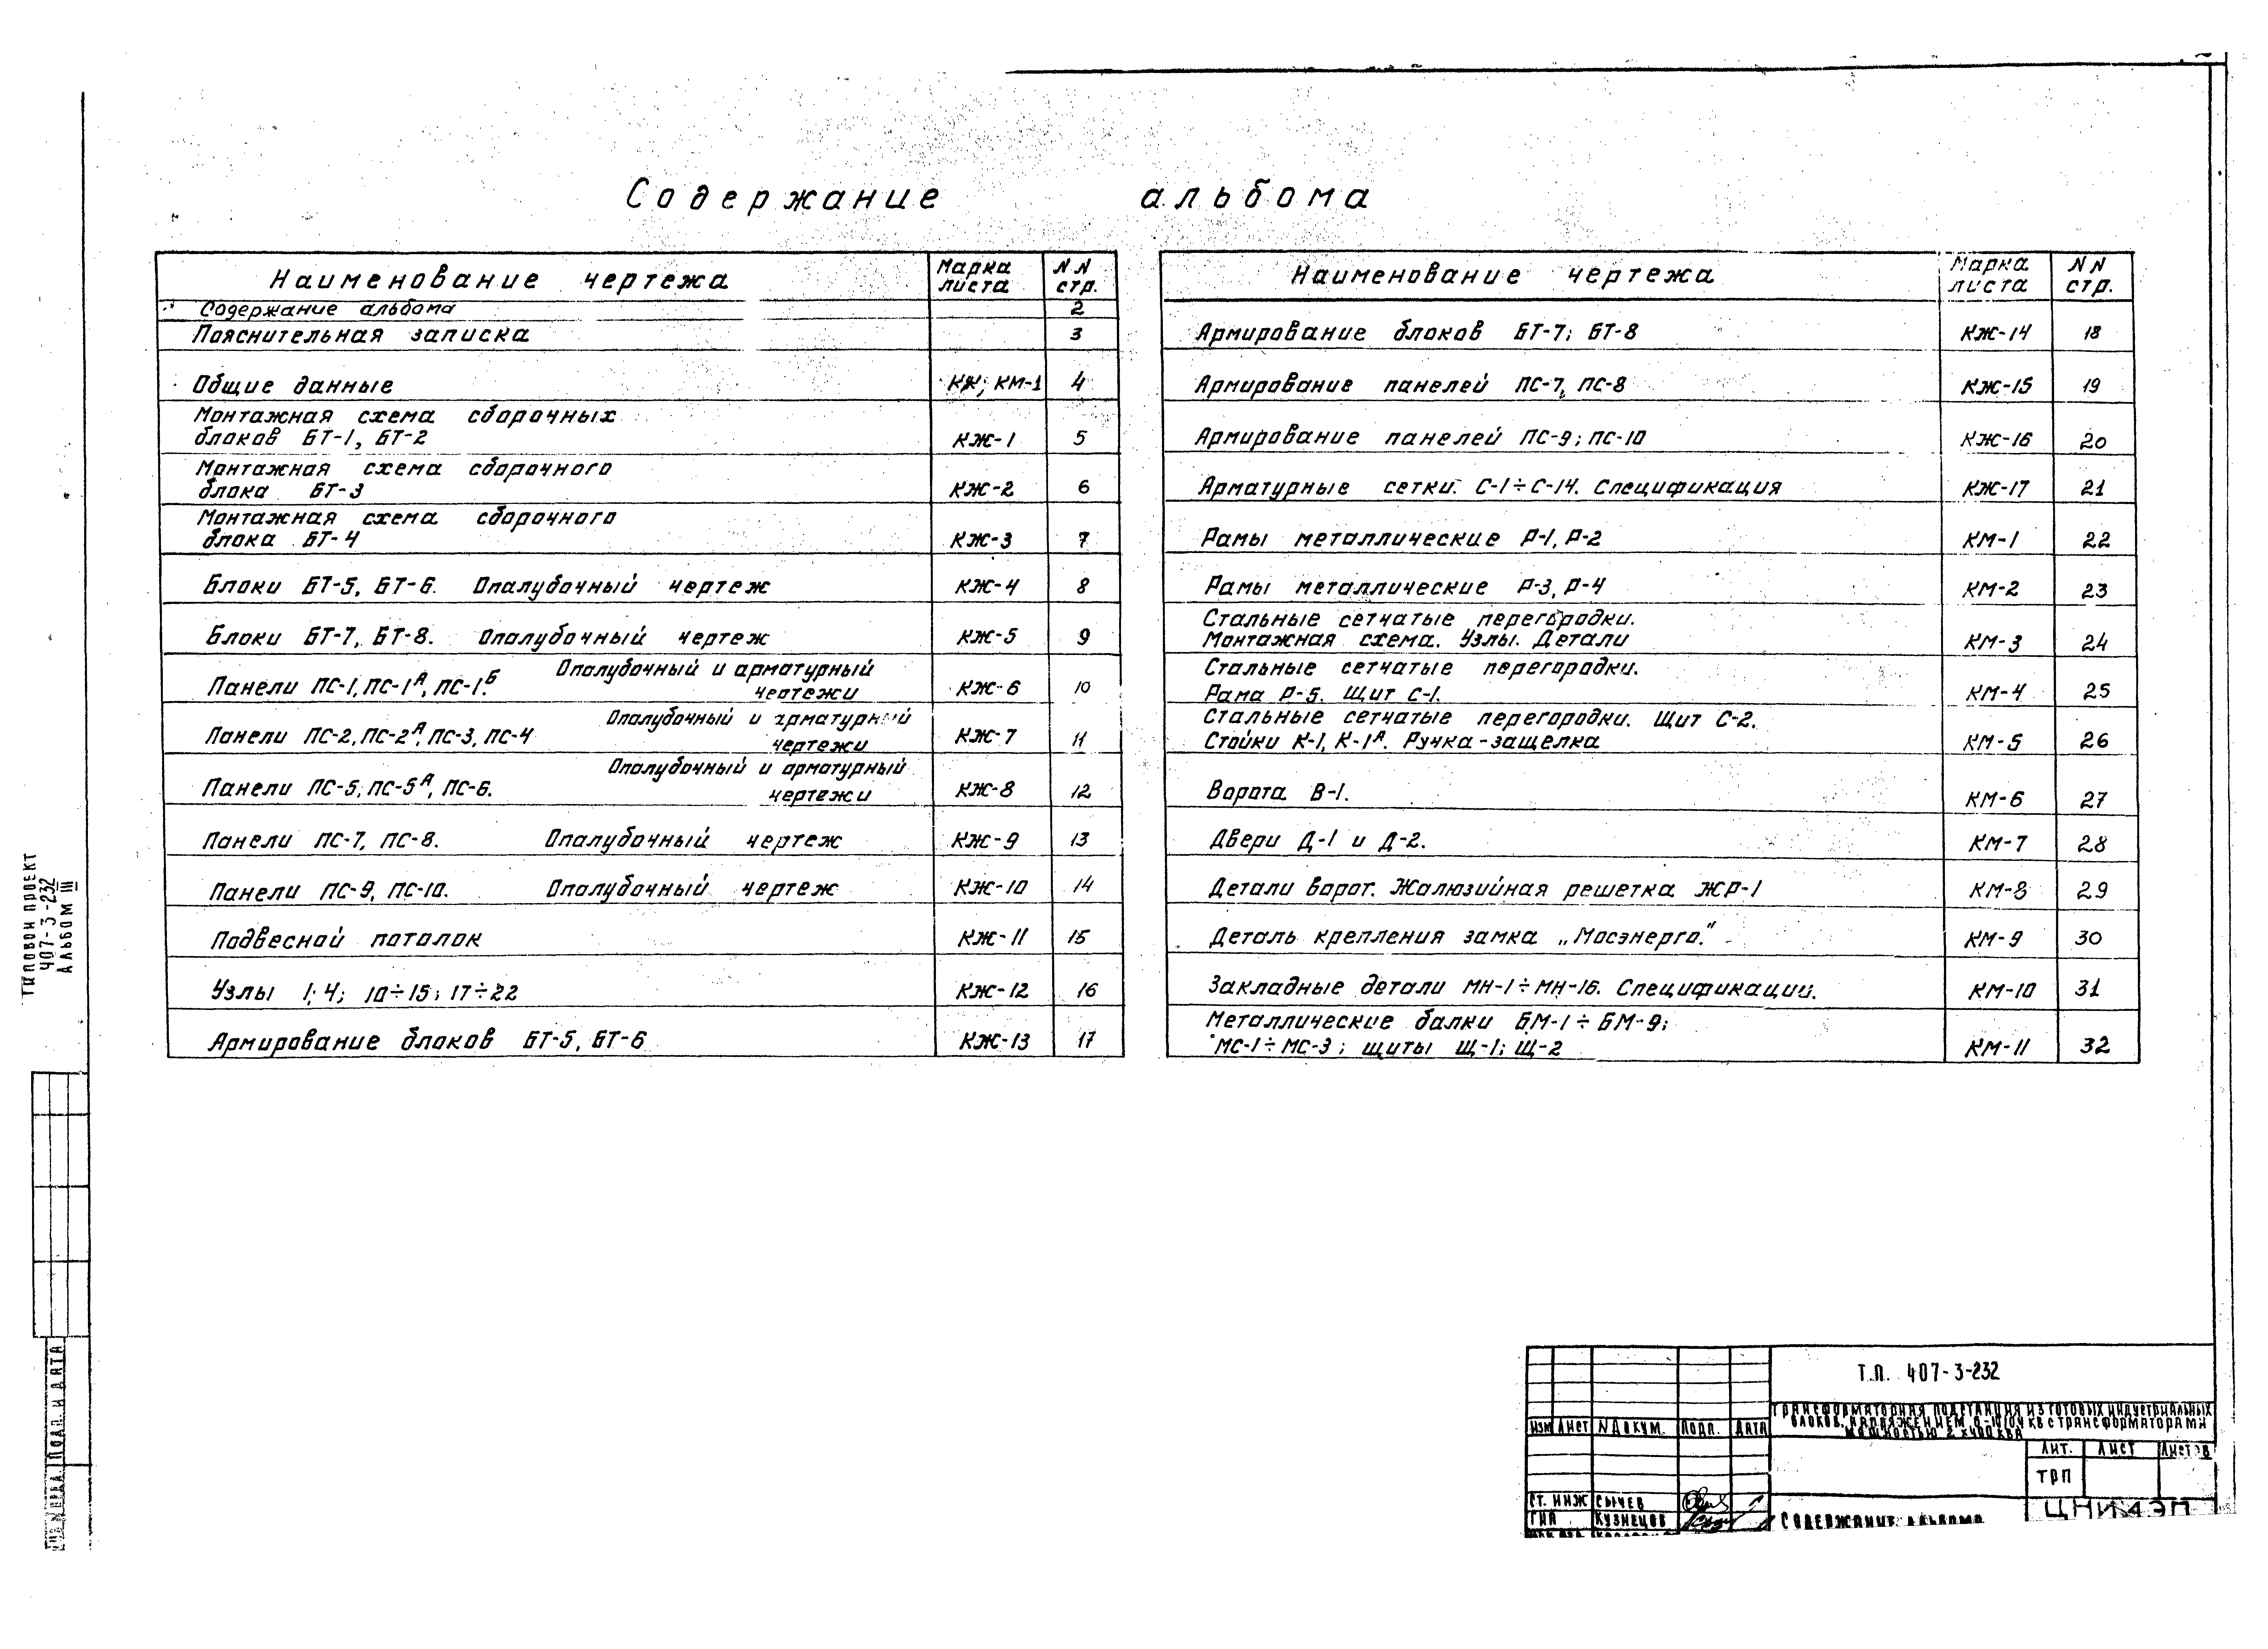 Содержание альбома
Наименование чертежа Марка листа NN стр.
Содержание альбома 2
Пояснительная записка 3
Общие данные КЖ; КМ-1 4
Монтажная схема сборочных
блоков БТ-1, БТ-2 КЖ-1 5
Монтажная схема сборочного
блока БТ-3 КЖ-2 6
Монтажная схема сборочного
блока БТ-4 КЖ-3 7
Блоки БТ-5, БТ-6. Опалубочный чертеж КЖ-4 8
Блоки БТ-7, БТ-8. Опалубочный чертеж КЖ-5 9
Панели ПС-1, ПС-1А, ПС-1Б. Опалубочный и арматурный
чертежи КЖ-6 10
Панели ПС-2, ПС-2А, ПС-3, ПС-4 Опалубочный и арматурный
чертежи КЖ-7 11
Панели ПС-5, ПС-5А, ПС-6. Опалубочный и арматурный
чертежи КЖ-8 12
Панели ПС-7, ПС-8. Опалубочный чертеж КЖ-9 13
Панели ПС-9, ПС-10. Опалубочный чертеж КЖ-10 14
Подвесной потолок КЖ-11 15
Узлы 1; 4; 10÷15; 17÷22 КЖ-12 16
Армирование блоков БТ-5, БТ-6 КЖ-13 17
Наименование чертежа Марка листа NN стр.
Армирование блоков БТ-7; БТ-8 КЖ-14 18
Армирование панелей ПС-7, ПС-8 КЖ-15 19
Армирование панелей ПС-9; ПС-10 КЖ-16 20
Арматурные сетки С-1÷С-14. Спецификация КЖ-17 21
Рамы металлические Р-1, Р-2 КМ-1 22
Рамы металлические Р-3, Р-4 КМ-2 23
Стальные сетчатые перегородки.
Монтажная схема. Узлы. Детали КМ-3 24
Стальные сетчатые перегородки.
Рама Р-5. Щит С-1. КМ-4 25
Стальные сетчатые перегородки. Щит С-2.
Стойки К-1, К-1А. Ручка-защелка КМ-5 26
Ворота В-1. КМ-6 27
Двери Д-1 и Д-2. КМ-7 28
Детали ворот. Жалюзийная решетка ЖР-1 КМ-8 29
Деталь крепления замка „Мосэнерго." КМ-9 30
Закладные детали МН-1÷МН-16. Спецификации. КМ-10 31
Металлические балки БМ-1÷БМ-9;
МС-1÷МС-3; щиты Щ-1; Щ-2 КМ-11 32
ТИПОВОЙ ПРОЕКТ
407-3-232
АЛЬБОМ III
ПОДП. И ДАТА
Т.П. 407-3-232
ТРАНСФОРМАТОРНАЯ ПОДСТАНЦИЯ ИЗ ГОТОВЫХ ИНДУСТРИАЛЬНЫХ
БЛОКОВ, НАПРЯЖЕНИЕМ 6-10/0,4 КВ С ТРАНСФОРМАТОРАМИ
МОЩНОСТЬЮ 2х400 КВА
ИЗМ ЛИСТ N ДОКУМ. ПОДП. ДАТА
ЛИТ. ЛИСТ ЛИСТОВ
ТРП
СТ. ИНЖ СЫЧЕВ
ГИП КУЗНЕЦОВ
СОДЕРЖАНИЕ АЛЬБОМА
ЦНИИЭП